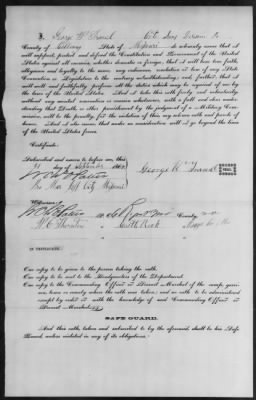 I, George W. Trout
County of Calloway State of Missouri do solemnly swear that I
will support, protect and defend the Constitution and Government of the United
States against all enemies, whether domestic or foreign; that I will bear true faith,
allegiance and loyalty to the same, any ordinance, resolution or law of any State
Convention or Legislature to the contrary notwithstanding; and further, that I
will well and faithfully perform all the duties which may be required of me by
the laws of the United States. And I take this oath freely and voluntarily,
without any mental reservation or evasion whatsoever, with a full and clear under-
standing that Death, or other punishment by the judgment of a Military Com-
mission, will be the penalty for the violation of this my solemn oath and parole of
honor. And I also swear that under no consideration will I go beyond the lines
of the United States forces.
Certificate:
Subscribed and sworn to before me, this
day of September
George W Trout SEAL.
City Missouri
Witnesses:
County
W. C. Thornton
IN TRIPLICATE.
One copy to be given to the person taking the oath.
One copy to be sent to the Headquarters of the Department.
One copy to the Commanding Officer or Provost Marshal of the camp, garri-
son, town or county where the oath was taken; and no oath to be administered
except by order or with the knowledge of such Commanding Officer or
Provost Marshal.
SAFE GUARD.
And this oath, taken and subscribed to by the aforesaid, shall be his Safe
Guard, unless violated in any of its obligations.